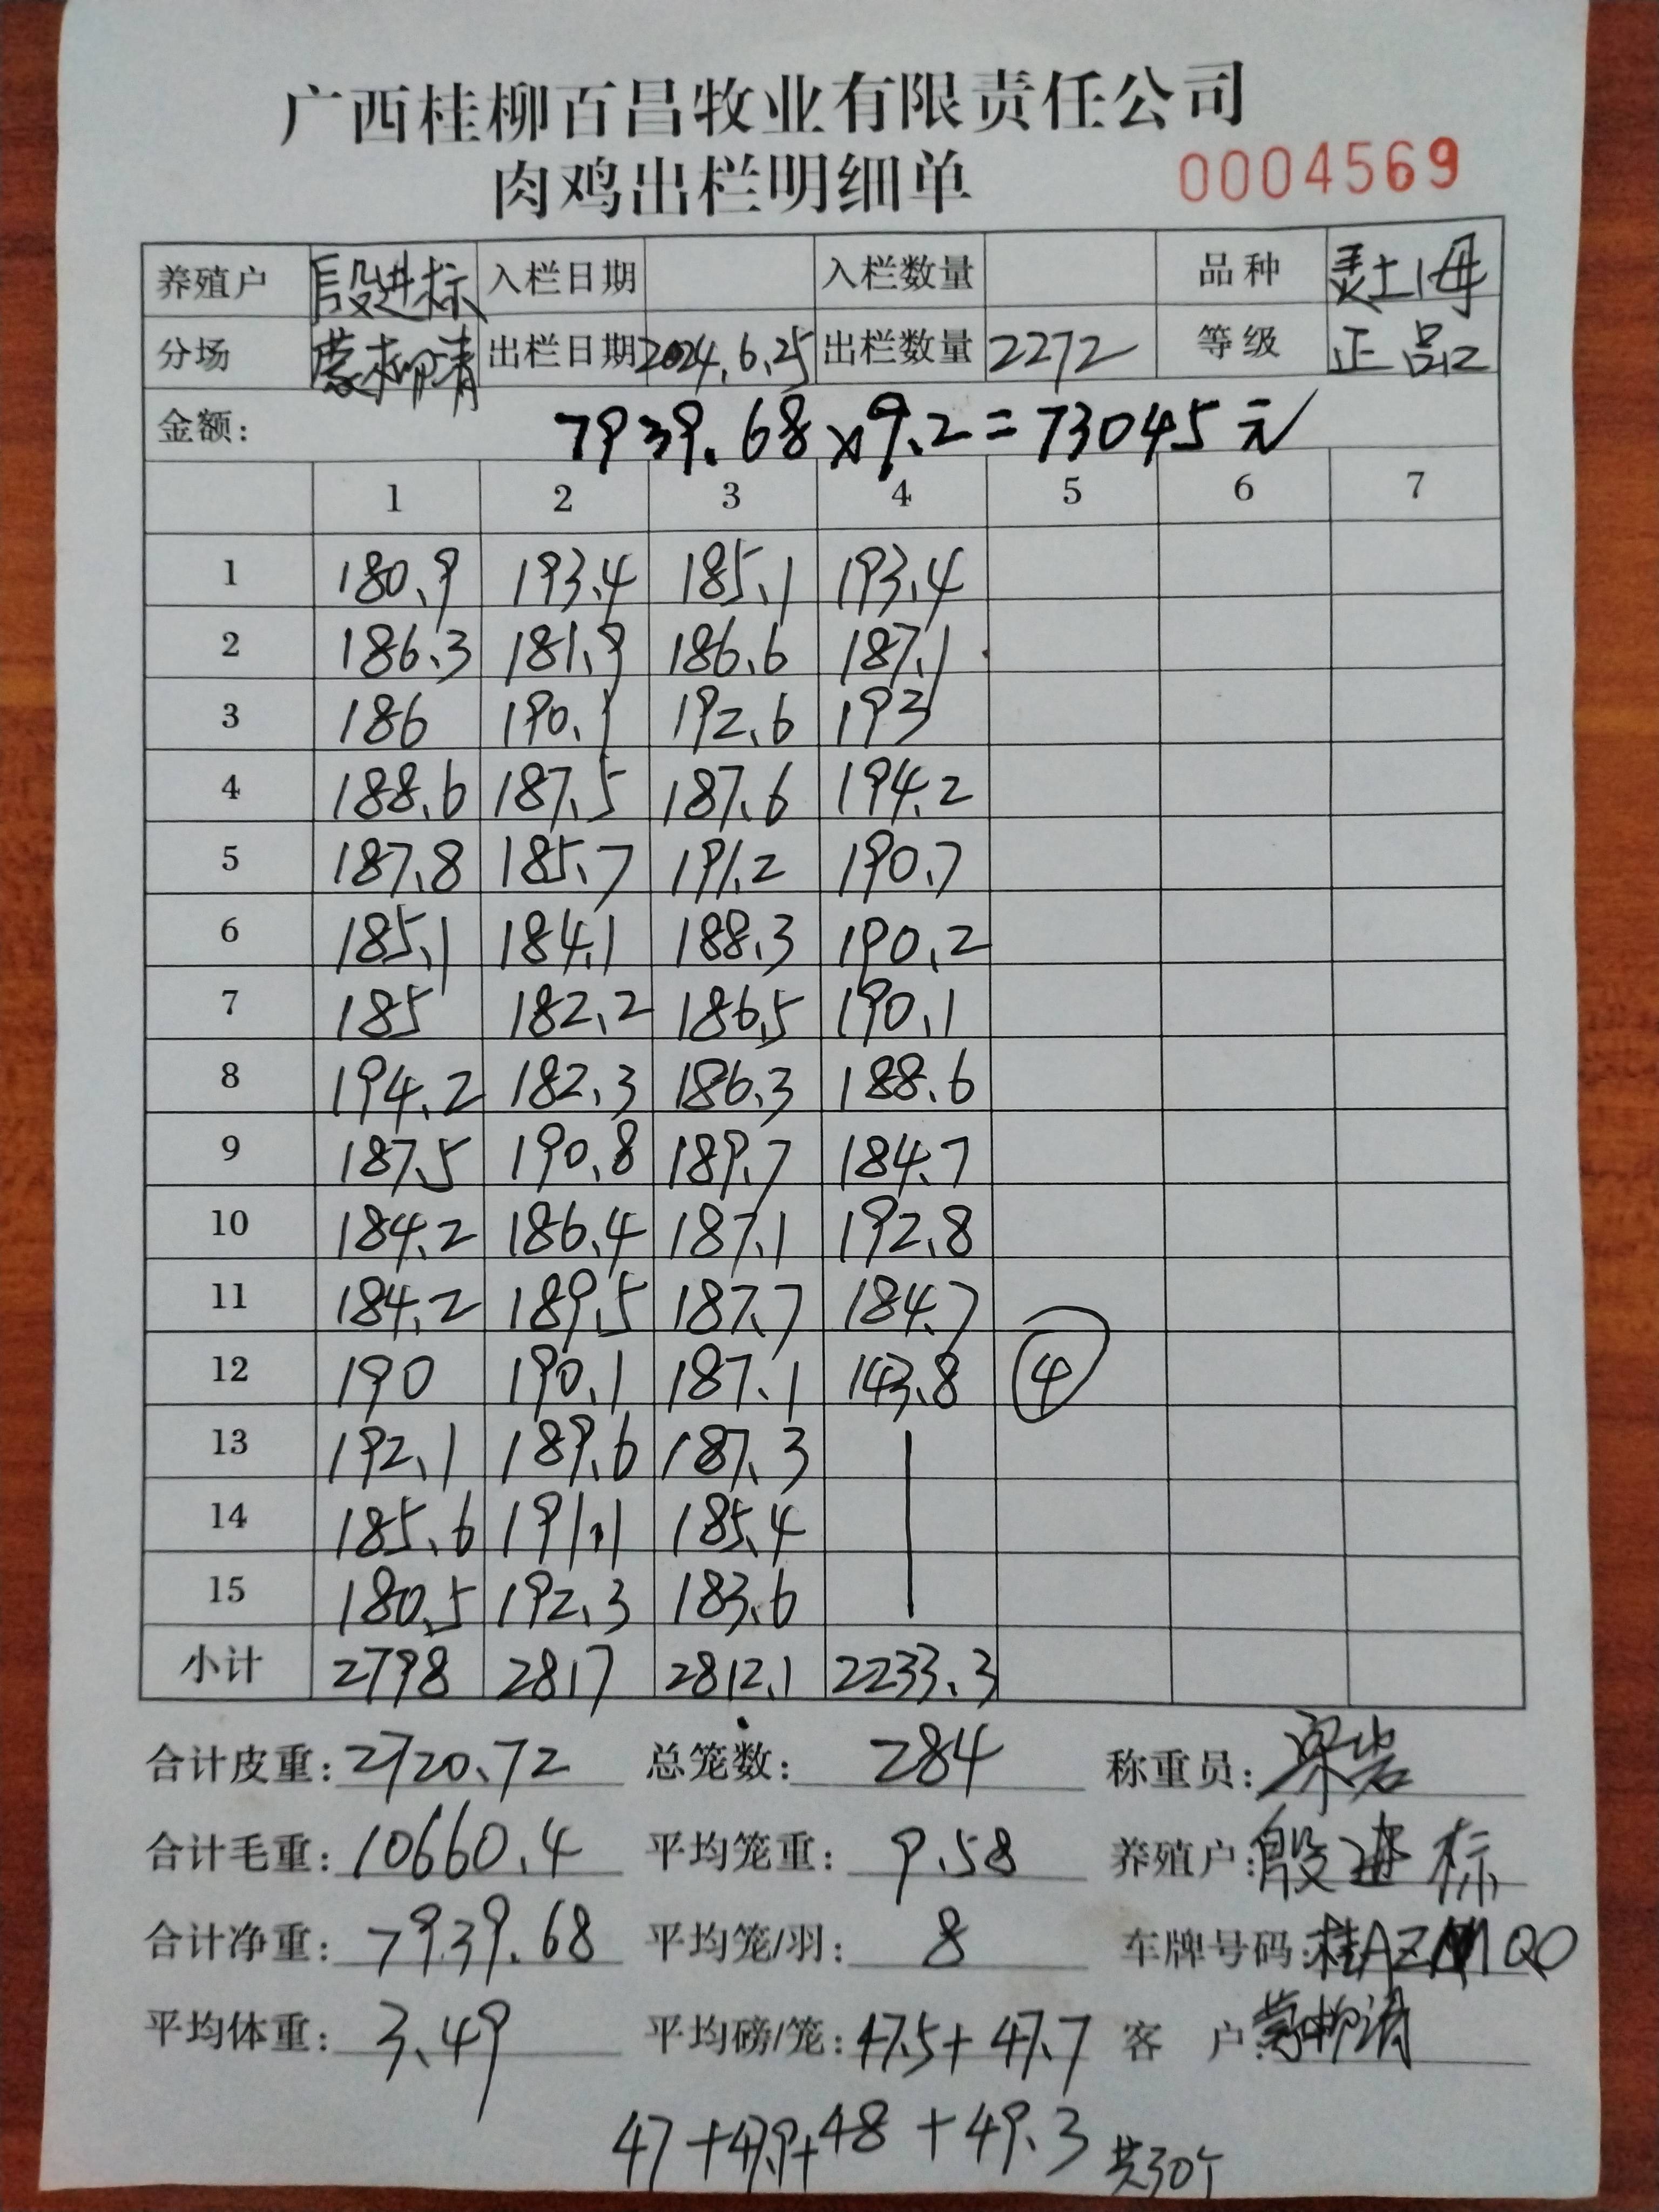 广西桂柳百昌牧业有限责任公司
肉鸡出栏明细单 0004569
养殖户 段进标 入栏日期 入栏数量 品种 土1母
分场 蒙柳清 出栏日期 2024.6.25 出栏数量 2272 等级 正品
金额: 7939.68×9.2=73045元
1 2 3 4 5 6 7
1 180.9 193.4 185.1 193.4
2 186.3 181.9 186.6 187.1
3 186 190.1 192.6 193
4 188.6 187.5 187.6 194.2
5 187.8 185.7 191.2 190.7
6 185.1 184.1 188.3 190.2
7 185 182.2 186.5 190.1
8 194.2 182.3 186.3 188.6
9 187.5 190.8 189.7 184.7
10 184.2 186.4 187.1 192.8
11 184.2 189.5 187.7 184.7
12 190 190.1 187.1 143.8 4
13 192.1 189.6 187.3
14 185.6 191.1 185.4
15 180.5 192.3 183.6
小计 2798 2817 2812.1 2233.3
合计皮重: 2720.72 总笼数: 284 称重员: 梁岩
合计毛重: 10660.4 平均笼重: 9.58 养殖户: 段进标
合计净重: 7939.68 平均笼/羽: 8 车牌号码: 桂AZ
平均体重: 3.49 平均磅/笼: 47.5+47.7 客户: 蒙柳清
47+47.9+48+49.3 共30个